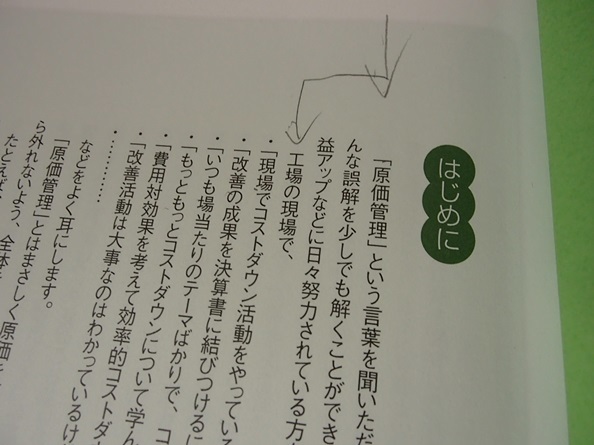 はじめに
「原価管理」という言葉を聞いただ
んな誤解を少しでも解くことができ
益アップなどに日々努力されている方
工場の現場で、
・「現場でコストダウン活動をやっている
・「改善の成果を決算書に結びつけるに
・「いつも場当たりのテーマばかりで、コ
・「もっともっとコストダウンについて学ん
・「費用対効果を考えて効率的コストダ
・「改善活動は大事なのはわかっているけ
・…………
などをよく耳にします。
「原価管理」とはまさしく原価を
ら外れないよう、全体を
たとえば